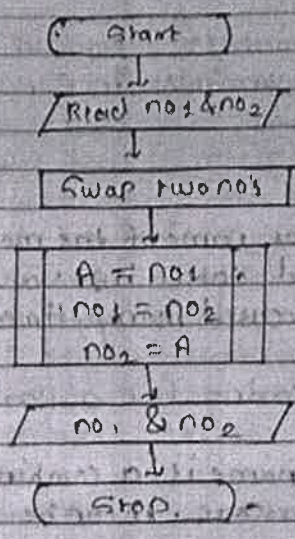 Start
Read no1 & no2
Swap two no's
A = no1
no1 = no2
no2 = A
no1 & no2
Stop.